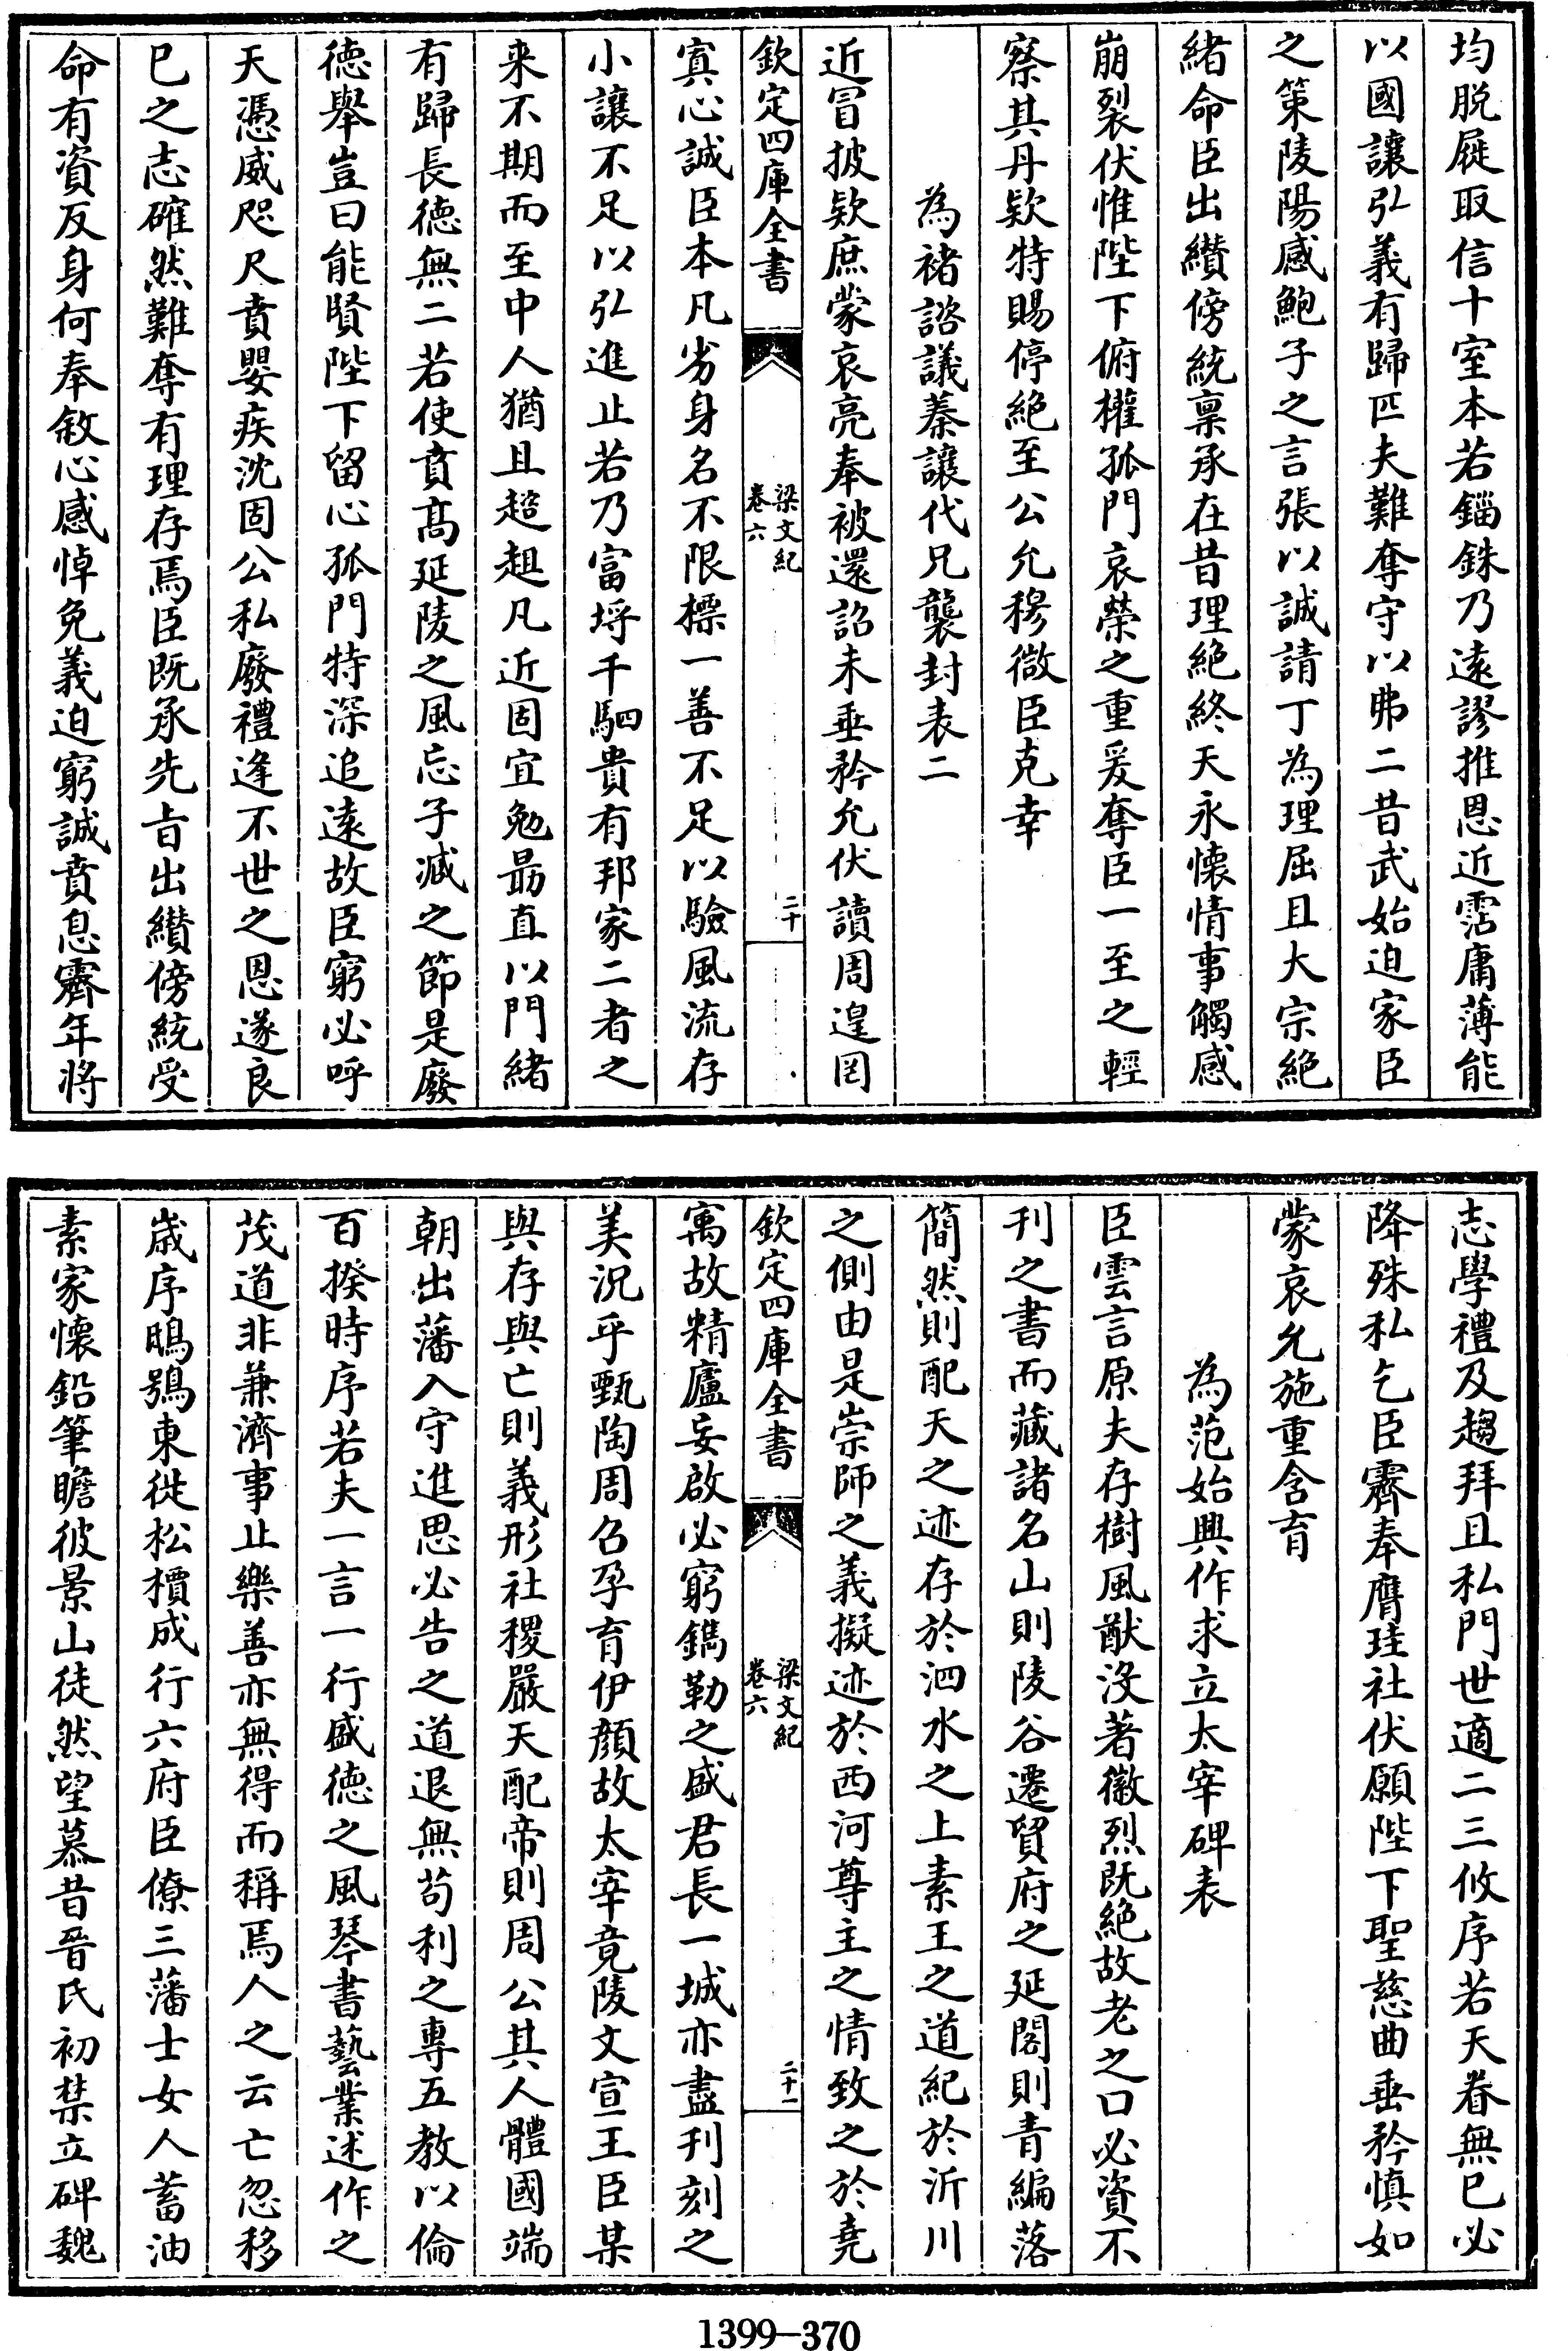 均脱屣取信十室本若錙銖乃逺謬推恩近霑庸薄能
以國讓弘義有歸匹夫難奪守以弗二昔武始迫家臣
之策陵陽感鮑子之言張以誠請丁為理屈且大宗絶
緒命臣出纉傍統禀承在昔理絶終天永懐情事觸感
崩裂伏惟陛下俯權孤門哀榮之重爰奪臣一至之輕
察其丹欵特賜停絶至公允穆微臣克幸
為褚諮議蓁讓代兄襲封表二
近冒披欵庶蒙哀亮奉被還詔未垂矜允伏讀周遑罔
欽定四庫全書
梁文紀
卷六
二十
寘心誠臣本凡劣身名不限標一善不足以驗風流存
小讓不足以弘進止若乃富埒千駟貴有邦家二者之
来不期而至中人猶且超趄凡近固宜勉勗直以門緒
有歸長徳無二若使賁高延陵之風忘子臧之節是廢
徳舉豈曰能賢陛下留心孤門特深追逺故臣窮必呼
天憑威咫尺賁嬰疾沈固公私廢禮逢不世之恩遂良
已之志確然難奪有理存焉臣既承先旨出纉傍統受
命有資反身何奉敘心感悼免義迫窮誠賁息霽年將
志學禮及趨拜且私門世適二三攸序若天眷無已必
降殊私乞臣霽奉膺珪社伏願陛下聖慈曲垂矜慎如
蒙哀允施重含育
為范始興作求立太宰碑表
臣雲言原夫存樹風猷沒著徽烈既絶故老之口必資不
刊之書而藏諸名山則陵谷遷貿府之延閣則青編落
簡然則配天之迹存於泗水之上素王之道紀於沂川
之側由是崇師之義擬迹於西河尊主之情致之於堯
欽定四庫全書
梁文紀
卷六
二十一
寓故精廬妄啟必窮鐫勒之盛君長一城亦盡刊刻之
美況乎甄陶周召孕育伊顔故太宰竟陵文宣王臣某
與存與亡則義形社稷嚴天配帝則周公其人體國端
朝出藩入守進思必告之道退無苟利之專五教以倫
百揆時序若夫一言一行盛徳之風琴書藝業述作之
茂道非兼濟事止樂善亦無得而稱焉人之云亡忽移
嵗序鴟鴞東徙松檟成行六府臣僚三藩士女人蓄油
素家懐鉛筆瞻彼景山徒然望慕昔晉氏初禁立碑魏
1399—370